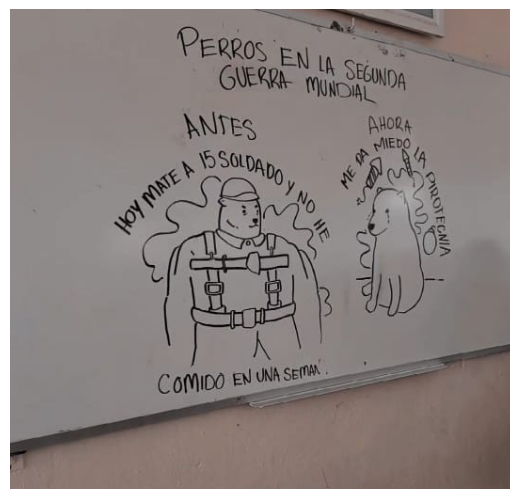 PERROS EN LA SEGUNDA
GUERRA MUNDIAL
ANTES
HOY MATE A 15 SOLDADO Y NO HE
COMIDO EN UNA SEMAN
AHORA
ME DA MIEDO LA PIROTECNIA